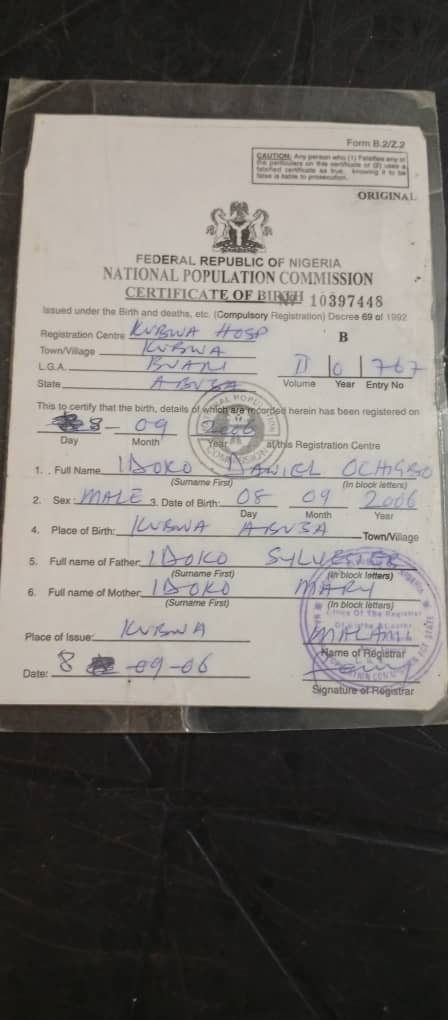 Form B.2/Z.2
CAUTION: Any person who (1) Falsifies any of
the particulars on this certificate or (2) uses a
falsified certificate as true, knowing it to be
false is liable to prosecution.
ORIGINAL
FEDERAL REPUBLIC OF NIGERIA
NATIONAL POPULATION COMMISSION
CERTIFICATE OF BIRTH Nº 10397448
Issued under the Birth and deaths, etc. (Compulsory Registration) Decree 69 of 1992
Registration Centre KUBWA HOSP B
Town/Village KUBWA
L.G.A. BWARI II 0 767
State ABUJA Volume Year Entry No
This to certify that the birth, details of which are recorded herein has been registered on
8 - 09 2006
Day Month Year at this Registration Centre
1. Full Name IDOKO DANIEL OCHIGBO
(Surname First) (In block letters)
2. Sex: MALE 3. Date of Birth: 08 09 2006
Day Month Year
4. Place of Birth: KUBWA ABUJA Town/Village
5. Full name of Father: IDOKO SYLVESTER
(Surname First) (In block letters)
6. Full name of Mother: IDOKO MARY
(Surname First) (In block letters)
Place of Issue: KUBWA MALAMI
Name of Registrar
Date: 8 -09-06
Signature of Registrar